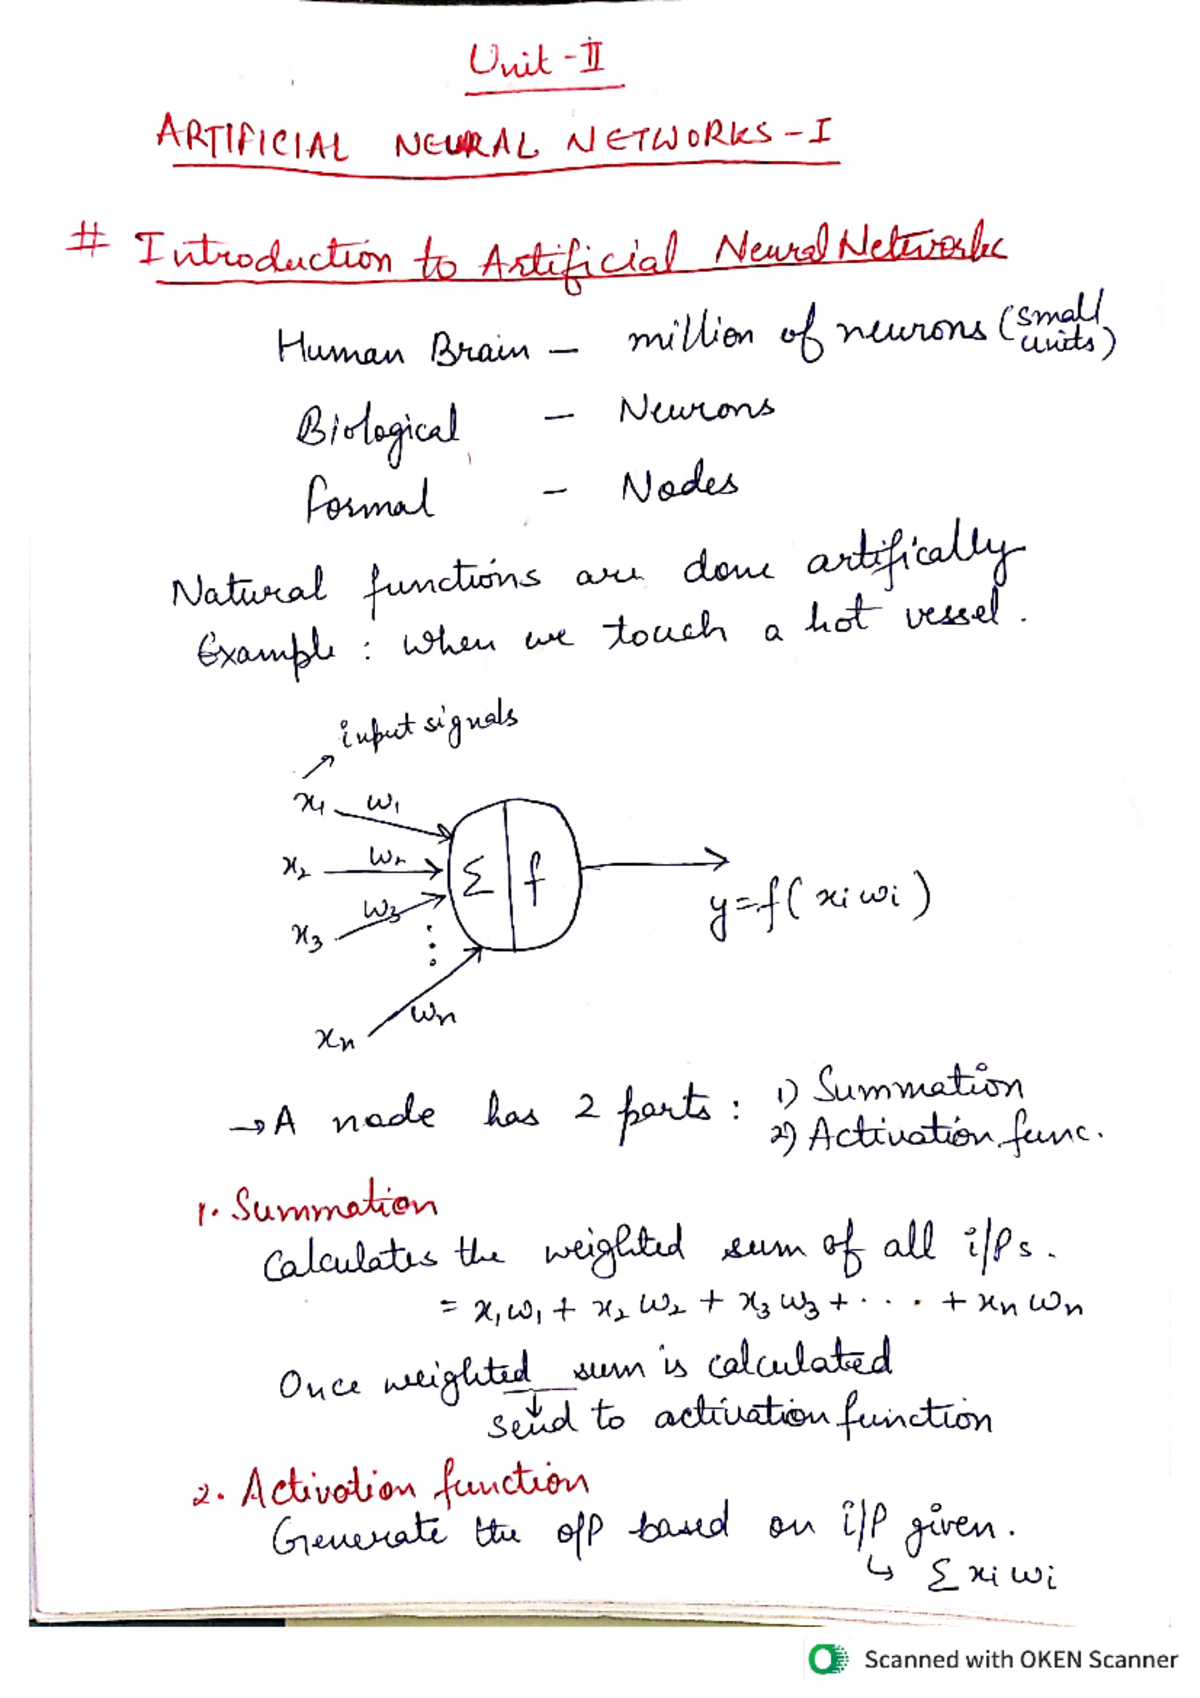 Unit - II
ARTIFICIAL NEURAL NETWORKS - I
# Introduction to Artificial Neural Network
Human Brain - million of neurons (small units)
Biological - Neurons
Formal - Nodes
Natural functions are done artifically
Example : When we touch a hot vessel.
input signals
x1 w1
x2 w2
Σ f
x3 w3
y=f(xiwi)
xn wn
→ A node has 2 parts : 1) Summation
2) Activation func.
1. Summation
Calculates the weighted sum of all i/ps.
= x1w1 + x2w2 + x3w3 + . . . + xnwn
Once weighted sum is calculated
↓
send to activation function
2. Activation function
Generate the o/p based on i/p given.
↳ Σxiwi
Scanned with OKEN Scanner